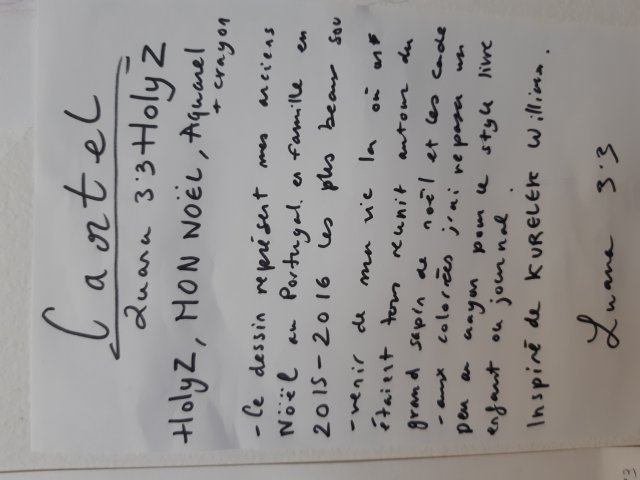 Cartel
Luana 3:3 HolyZ
HolyZ, MON NOËL, Aquarel
+ crayon
- Ce dessin représent mes anciens
Nöel au Portugal en famille en
2015-2016 les plus beaux sou
-venir de mon vie là où ont
étaient tous reunit autour du
grand sapin de noël et les cade
-aux coloriés j'ai repassé un
peu au crayon pour le style livre
enfant ou journal.
Inspiré de KURELEK William.
Luana 3:3